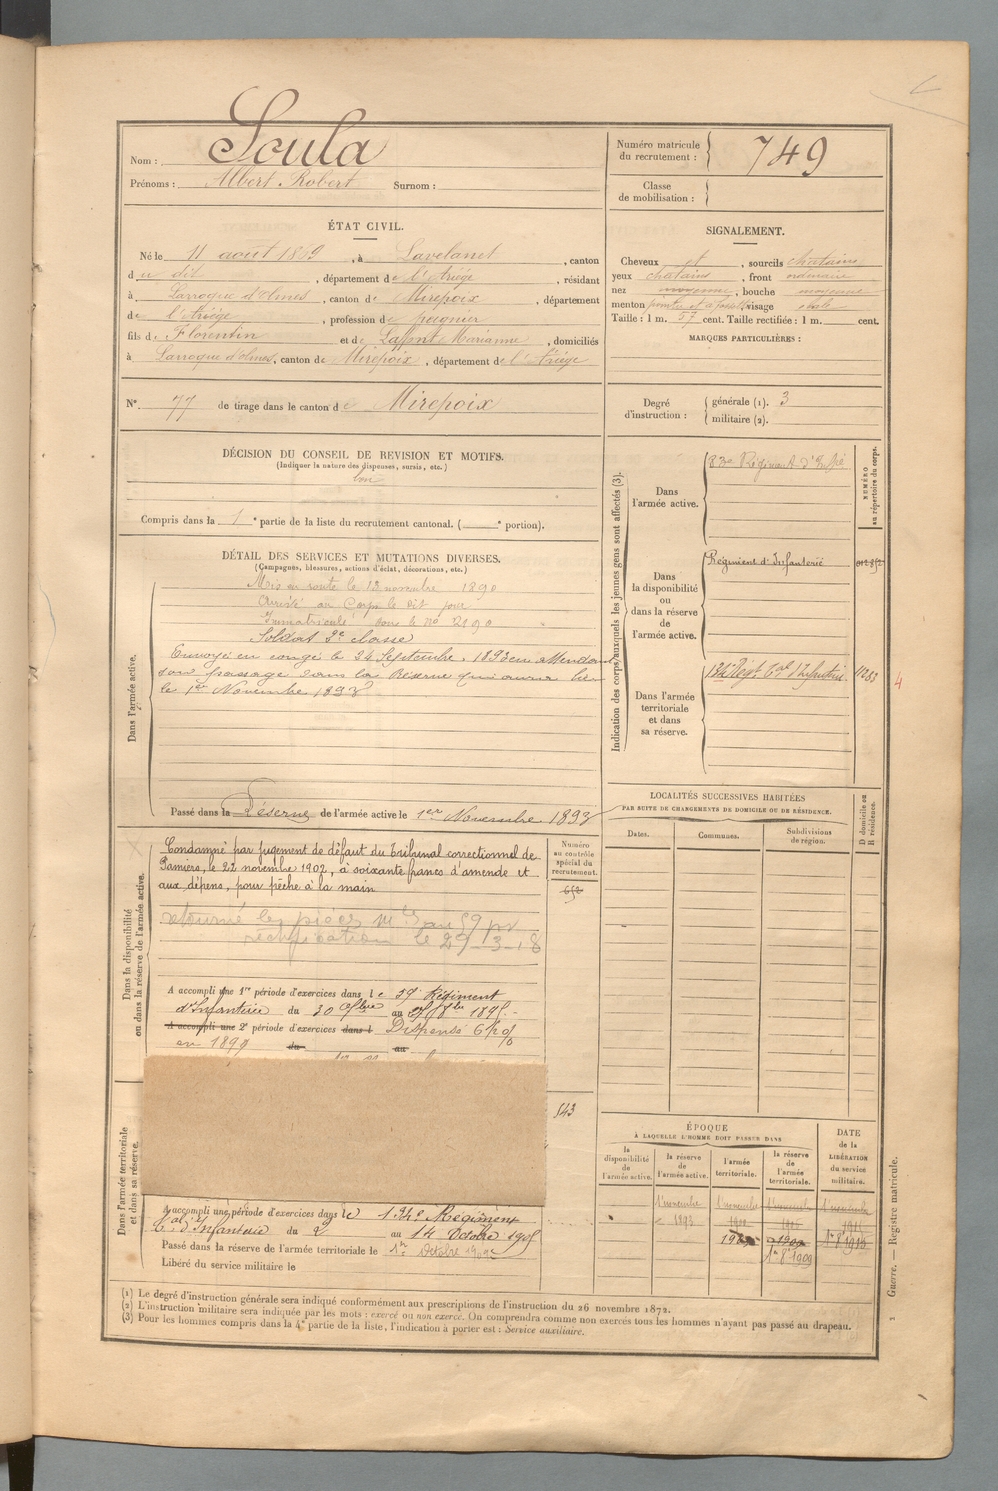 Nom : Soula
Prénoms : Albert Robert Surnom :
Numéro matricule du recrutement : 749
Classe de mobilisation :
ÉTAT CIVIL.
Né le 11 août 1869, à Lavelanet, canton
du dit, département de l'Ariège, résidant
à Laroque d'olmes, canton de Mirepoix, département
de l'Ariège, profession de peignier
fils de Florentin et de Laffont Marianne, domiciliés
à Laroque d'olmes, canton de Mirepoix, département de l'Ariège
N° 77 de tirage dans le canton de Mirepoix
SIGNALEMENT.
Cheveux et, sourcils chatains
yeux chatains, front ordinaire
nez moyenne, bouche moyenne
menton pointu et à fossette visage ovale
Taille : 1 m. 57 cent. Taille rectifiée : 1 m. cent.
MARQUES PARTICULIÈRES :
Degré d'instruction : générale (1). 3
militaire (2).
DÉCISION DU CONSEIL DE REVISION ET MOTIFS.
(Indiquer la nature des dispenses, sursis, etc.)
bon
Compris dans la 1e partie de la liste du recrutement cantonal. ( e portion).
DÉTAIL DES SERVICES ET MUTATIONS DIVERSES.
(Campagnes, blessures, actions d'éclat, décorations, etc.)
Dans l'armée active.
Mis en route le 12 novembre 1890
Arrivé au Corps le dit jour
Immatriculé sous le no 2190
Soldat 2e classe
Envoyé en congé le 24 Septembre 1893 en attendant
son passage dans la Réserve qui aura lieu
le 1er Novembre 1893
Passé dans la Réserve de l'armée active le 1er Novembre 1893
Indication des corps auxquels les jeunes gens sont affectés (3).
NUMÉRO au répertoire du corps.
Dans l'armée active.
83e Régiment d'Infie
Dans la disponibilité ou dans la réserve de l'armée active.
Régiment d'Infanterie
Dans l'armée territoriale et dans sa réserve.
134 Régt Tal d'Infanterie.
4
LOCALITÉS SUCCESSIVES HABITÉES
PAR SUITE DE CHANGEMENTS DE DOMICILE OU DE RÉSIDENCE.
Dates. Communes. Subdivisions de région. D domicile ou R résidence.
Dans la disponibilité ou dans la réserve de l'armée active.
Numéro au contrôle spécial du recrutement.
Condamné par jugement de défaut du Tribunal correctionnel de
Pamiers, le 22 novembre 1902, à soixante francs d'amende et
aux dépens, pour pêche à la main
retourné les pièces mles au 59 pr
rectification le 29-3-18
A accompli une 1re période d'exercices dans le 59 Régiment
d'Infanterie du 30 7bre au 8bre 1895.
A accompli une 2e période d'exercices dans l Dispensé
en 189 du au
543
Dans l'armée territoriale et dans sa réserve.
A accompli une période d'exercices dans le 134e Régiment
Tal d'Infanterie du 2 au 14 Octobre 1905
Passé dans la réserve de l'armée territoriale le 1er Octobre
Libéré du service militaire le
ÉPOQUE
À LAQUELLE L'HOMME DOIT PASSER DANS
la disponibilité de l'armée active. la réserve de l'armée active. l'armée territoriale. la réserve de l'armée territoriale.
DATE de la LIBÉRATION du service militaire.
1 novembre 1893
1er 8 1909
(1) Le degré d'instruction générale sera indiqué conformément aux prescriptions de l'instruction du 26 novembre 1872.
(2) L'instruction militaire sera indiquée par les mots : exercé ou non exercé. On comprendra comme non exercés tous les hommes n'ayant pas passé au drapeau.
(3) Pour les hommes compris dans la 4e partie de la liste, l'indication à porter est : Service auxiliaire.
Guerre. — Registre matricule.